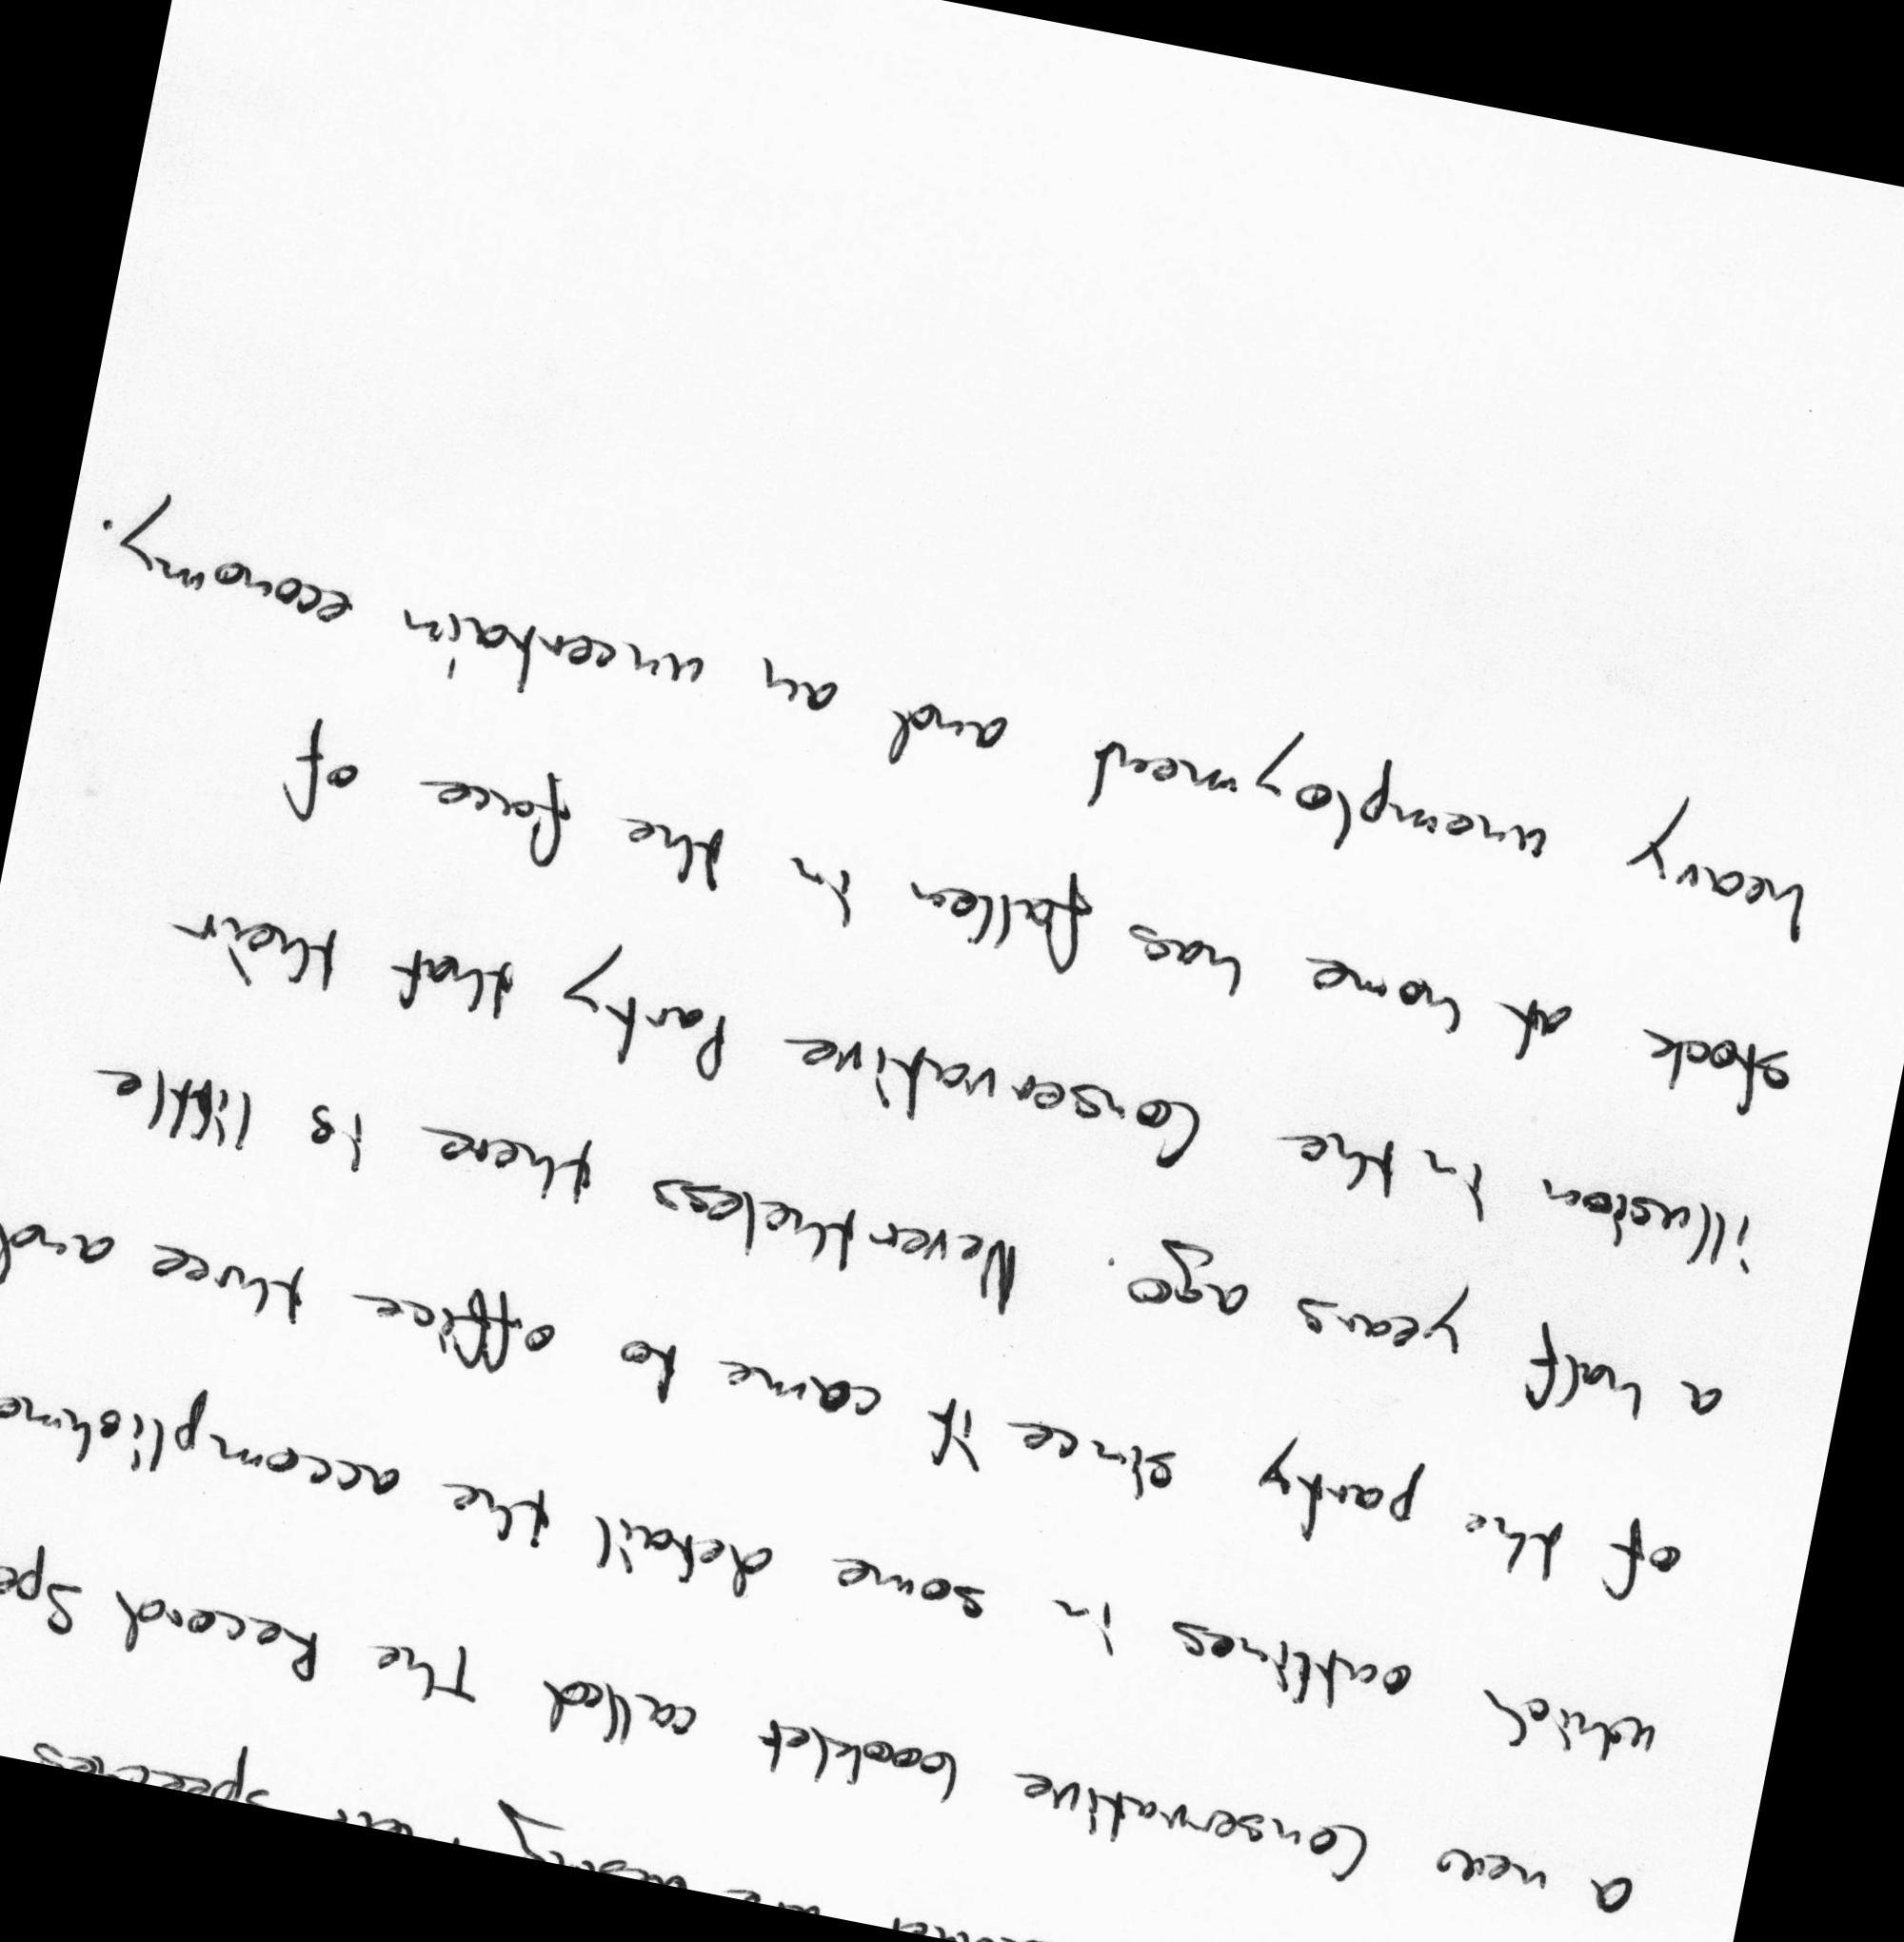 using their speeches
a new Conservative booklet called The Record Spe
which outlines in some detail the accomplishme
of the party since it came to office three and
a half years ago. Nevertheless there is little
illusion in the Conservative Party that their
stock at home has fallen in the face of
heavy unemployment and an uncertain economy.